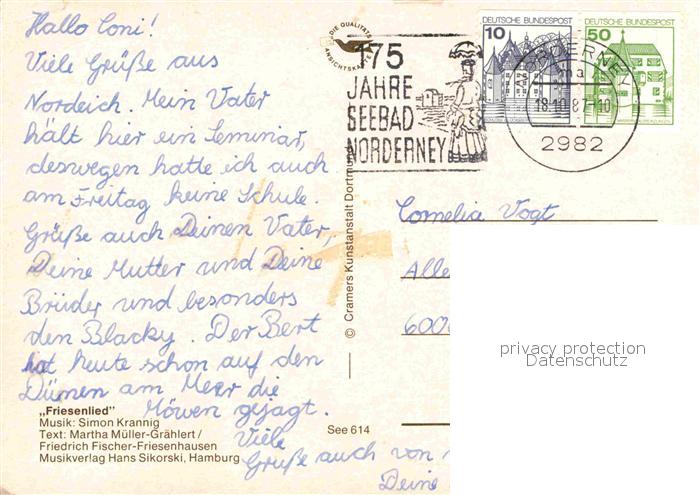 Hallo Coni!
Viele Grüße aus
Nordeich. Mein Vater
hält hier ein Seminar,
deswegen hatte ich auch
am Freitag keine Schule.
Grüße auch Deinen Vater,
Deine Mutter und Deine
Brüder und besonders
den Blacky. Der Bert
hat heute schon auf den
Dünen am Meer die
Möwen gejagt.
Viele
Grüße auch von
Deine
„Friesenlied"
Musik: Simon Krannig
Text: Martha Müller-Grählert /
Friedrich Fischer-Friesenhausen
Musikverlag Hans Sikorski, Hamburg
See 614
© Cramers Kunstanstalt Dortmund
DIE QUALITÄTS
ANSICHTSKARTE
175
JAHRE
SEEBAD
NORDERNEY
DEUTSCHE BUNDESPOST
10
DEUTSCHE BUNDESPOST
50
NORDERNEY
ma
18.10.87-10
2982
Cornelia Vogt
Alle
600
privacy protection
Datenschutz